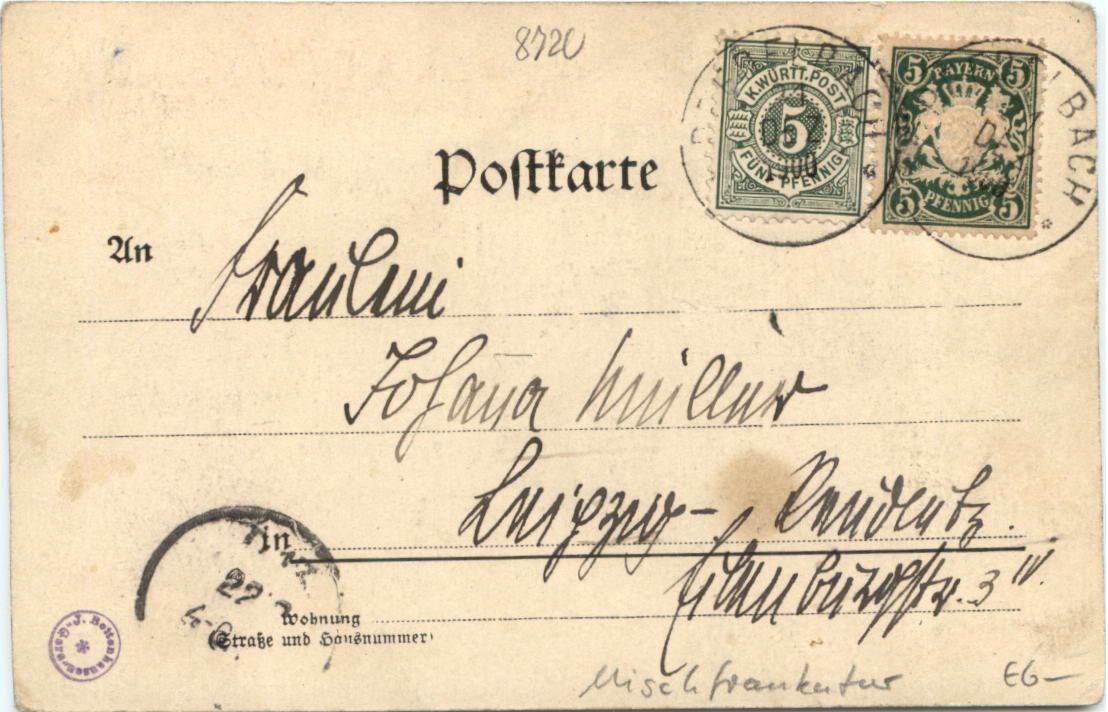 8720
K. WÜRTT. POST
5
FÜNF PFENNIG
1900
5 BAYERN 5
5 PFENNIG 5
ELBACH
Postkarte
An
Fräulein
Johanna Müller
in Leipzig-Reudnitz.
Eilenburgstr. 3 IV.
22
Wohnung
(Straße und Hausnummer)
J. Bettenhausen
Mischfrankatur
EG-